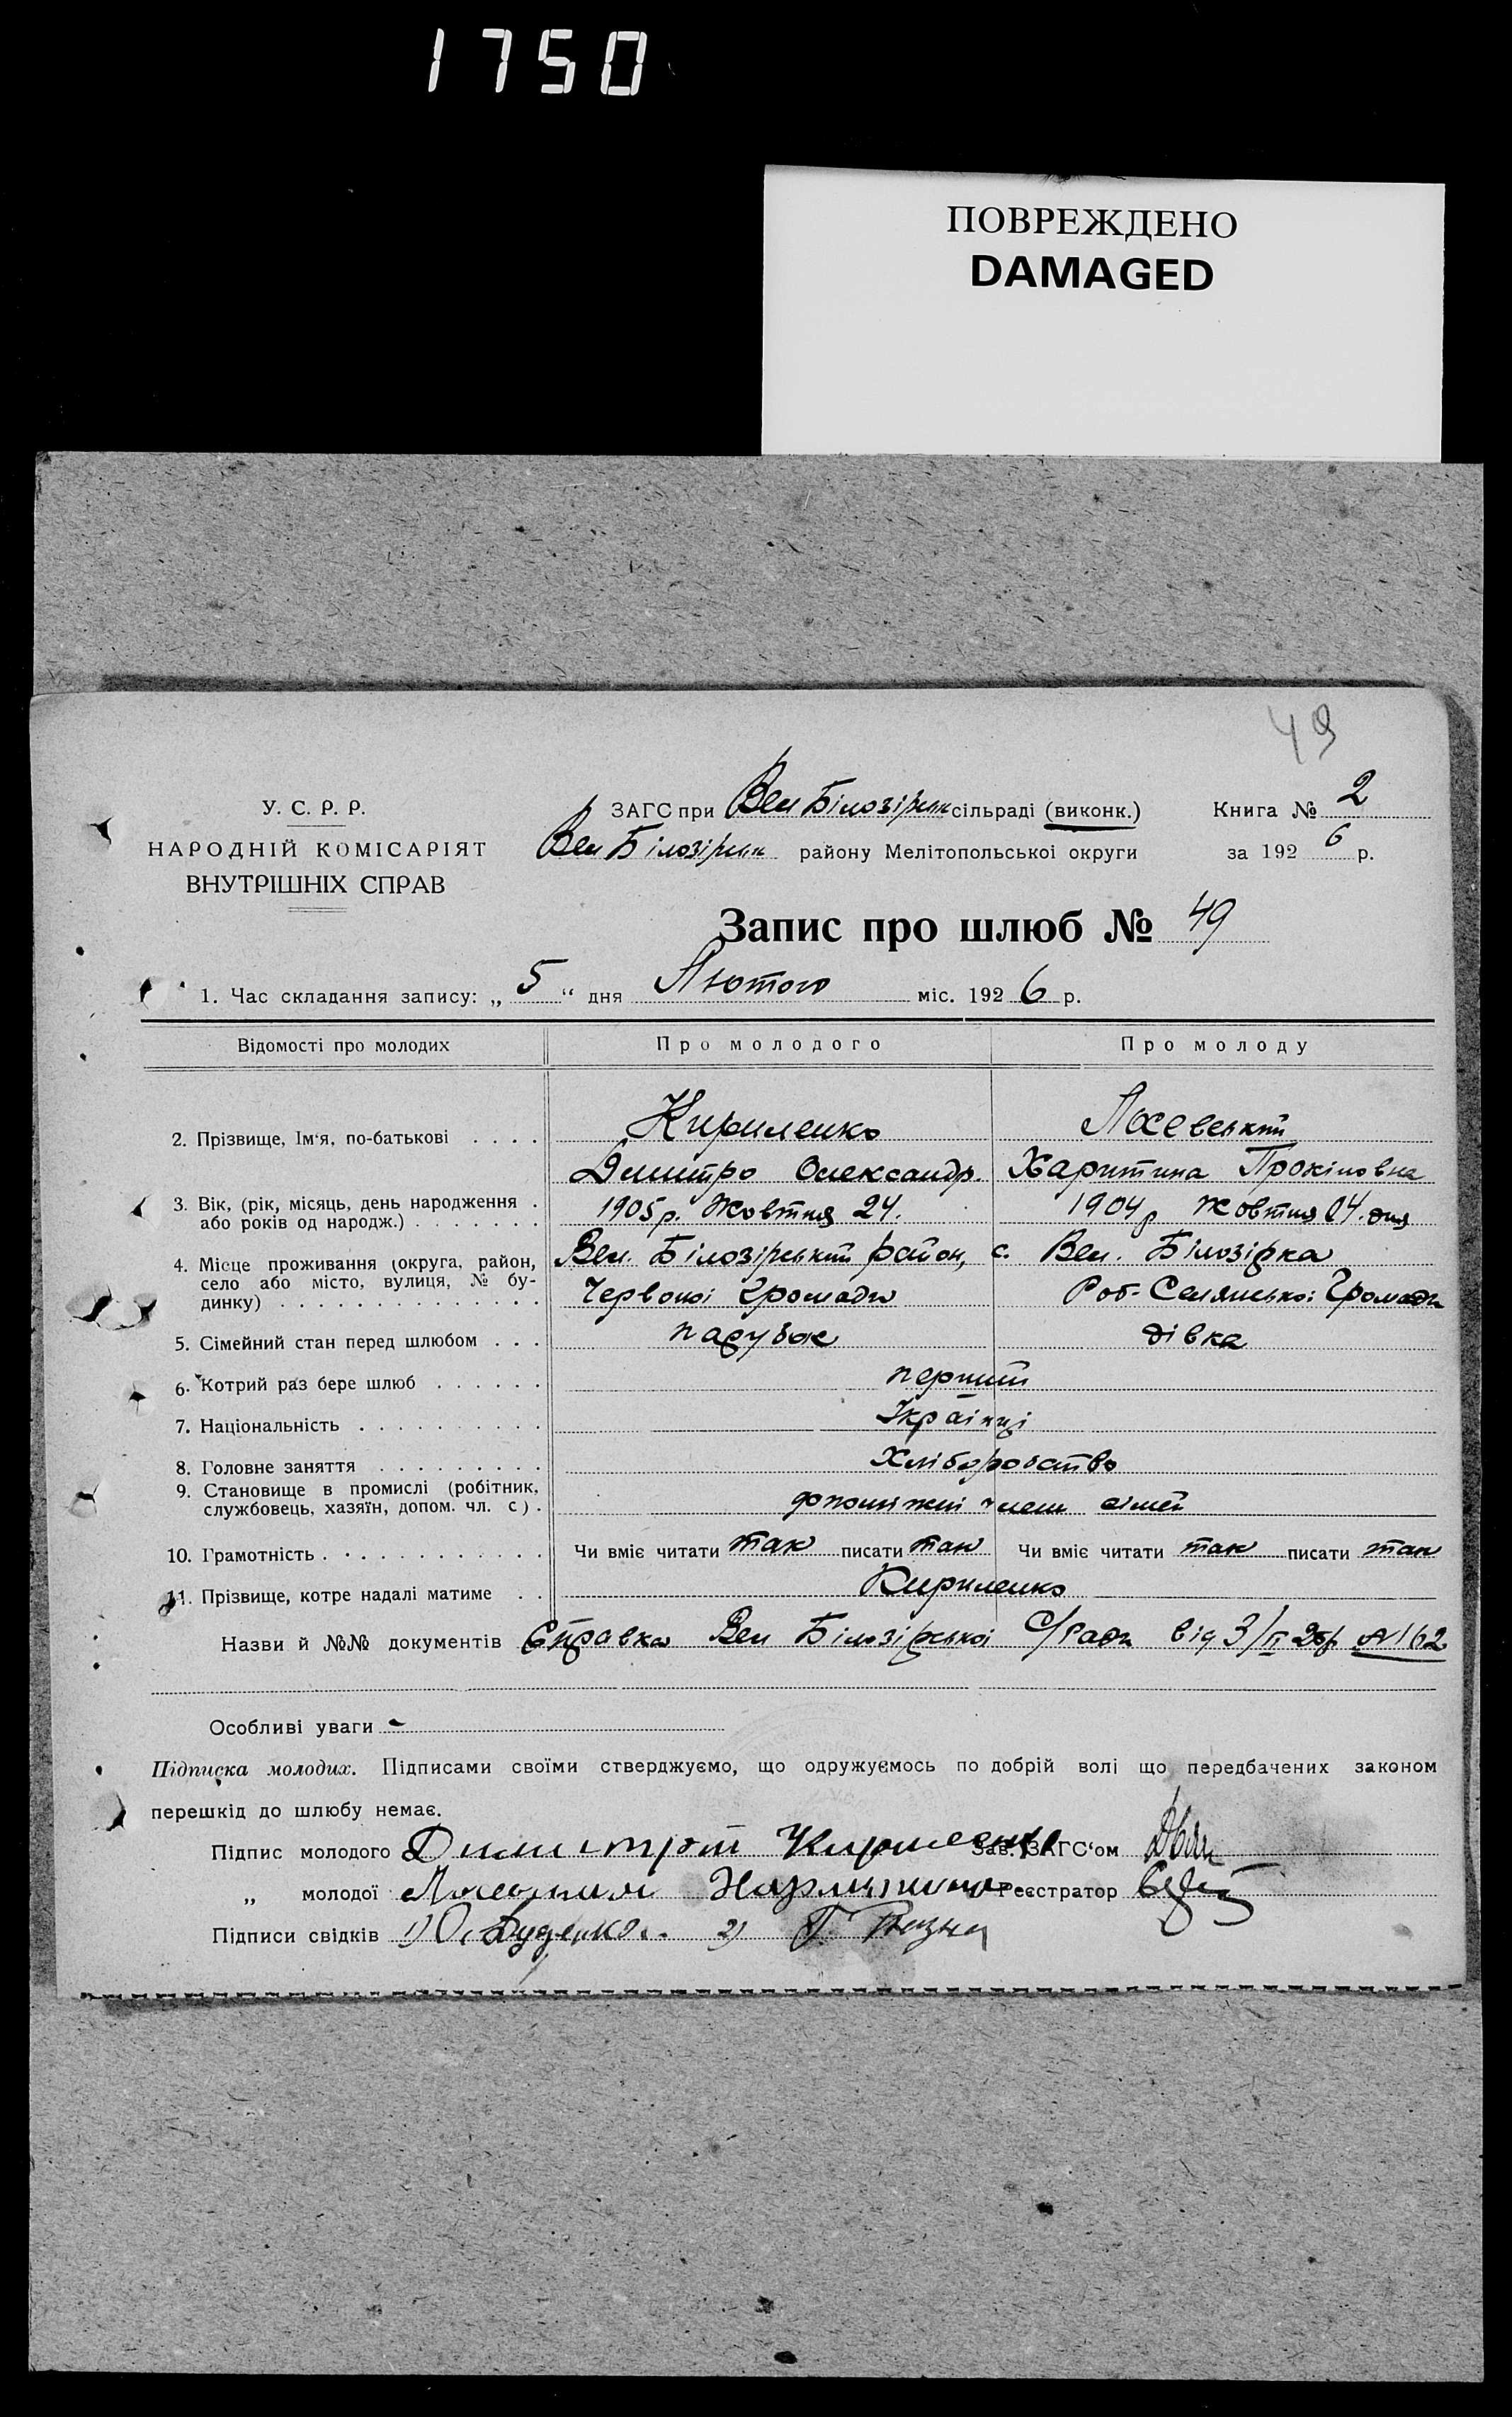 1750
ПОВРЕЖДЕНО
DAMAGED
49
У. С. Р. Р.
НАРОДНІЙ КОМІСАРІЯТ
ВНУТРІШНІХ СПРАВ
ЗАГС при Вел Білозірськ сільраді (виконк.)
Вел Білозірськ району Мелітопольської округи
Книга № 2
за 1926 р.
Запис про шлюб № 49
1. Час складання запису: „5“ дня Лютого міс. 1926 р.
Відомості про молодих Про молодого Про молоду
2. Прізвище, Ім‘я, по-батькові . . . . Кириленко
Дмитро Олександр. Харитина
3. Вік, (рік, місяць, день народження .
або років од народж.) . . . . . . . 1905 р. Жовтня 24. 1904 р Жовтня 04. дня
4. Місце проживання (округа, район,
село або місто, вулиця, № бу-
динку) . . . . . . . . . . . . . . Вел. Білозірський район, с. Вел. Білозірка
Червоної Громади Роб-Селянської Громади
5. Сімейний стан перед шлюбом . . . парубок дівка
6. Котрий раз бере шлюб . . . . . . перший
7. Національність . . . . . . . . . . Українці
8. Головне заняття . . . . . . . . . Хліборобство
9. Становище в промислі (робітник,
службовець, хазяїн, допом. чл. с) . допоміжні члени сімей
10. Грамотність . . . . . . . . . . . . Чи вміє читати так писати так Чи вміє читати так писати так
11. Прізвище, котре надалі матиме . . Кириленко
Назви й №№ документів Справка Вел Білозірської С/Ради від 3/II 26р №162
Особливі уваги -
Підписка молодих. Підписами своїми стверджуємо, що одружуємось по добрій волі що передбачених законом
перешкід до шлюбу немає.
Підпис молодого Кириленко Зав. ЗАГС‘ом
„ молодої Реєстратор
Підписи свідків 1) 2)